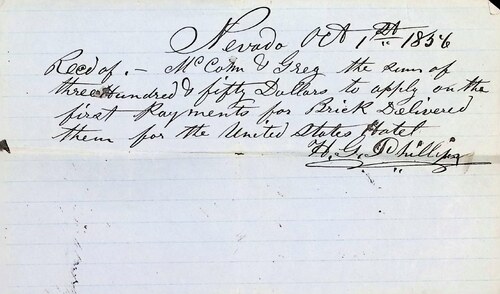 Nevada Oct 1st 1856
Recd of. - McComb & Greg the sum of
three Hundred & fifty Dollars to apply on the
first Payments for Brick Delivered
them for the United States Hotel
H. G. Phillips